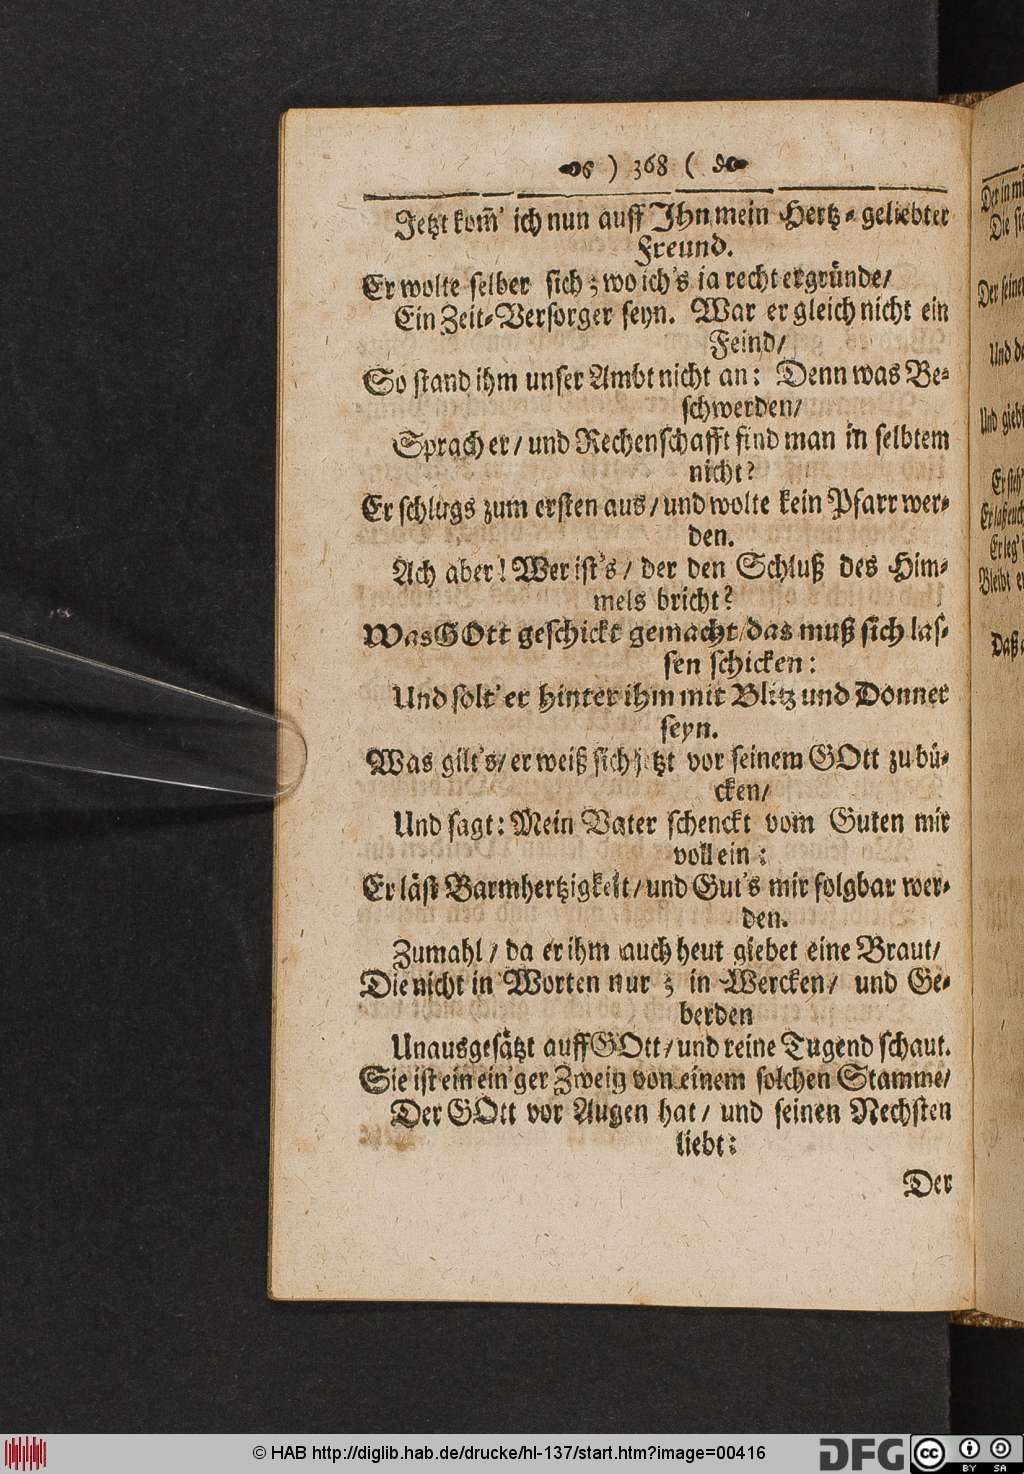 ) 368 (
Jetzt kom̃' ich nun auff Ihn mein Hertz-geliebter
Freund.
Er wolte selber sich; wo ich's ja recht ergründe/
Ein Zeit-Versorger seyn. War er gleich nicht ein
Feind/
So stand ihm unser Ambt nicht an: Denn was Be-
schwerden/
Sprach er/ und Rechenschafft find man in selbtem
nicht?
Er schlugs zum ersten aus/ und wolte kein Pfarr wer-
den.
Ach aber! Wer ist's/ der den Schluß des Him-
mels bricht?
Was GOtt geschickt gemacht/ das muß sich las-
sen schicken:
Und solt' er hinter ihm mit Blitz und Donner
seyn.
Was gilt's/ er weiß sich jetzt vor seinem GOtt zu bü-
cken/
Und sagt: Mein Vater schenckt vom Guten mir
voll ein:
Er läst Barmhertzigkeit/ und Gut's mir folgbar wer-
den.
Zumahl/ da er ihm auch heut giebet eine Braut/
Die nicht in Worten nur; in Wercken/ und Ge-
berden
Unausgesätzt auff GOtt/ und reine Tugend schaut.
Sie ist ein ein'ger Zweig von einem solchen Stamme/
Der GOtt vor Augen hat/ und seinen Nechsten
liebt:
Der
Die
Der seine
Und
Und
Bleibt
Daß
© HAB http://diglib.hab.de/drucke/hl-137/start.htm?image=00416
DFG
cc BY SA